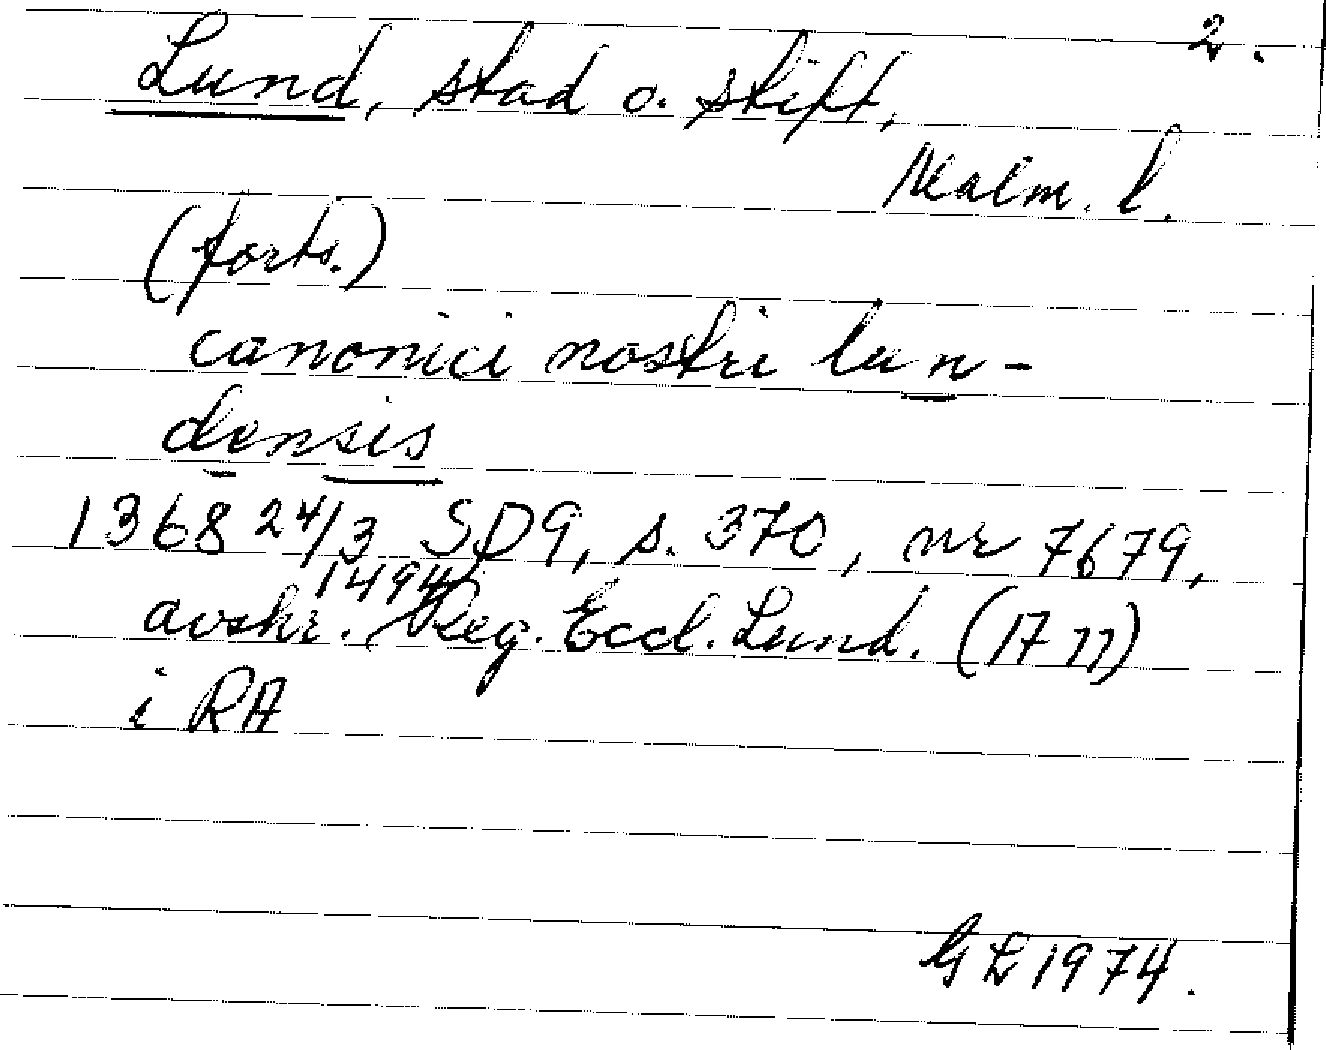 2.
Lund, stad o. stift,
Malm. l.
(forts.)
canonici nostri lun-
densis
1368 24/3 SD9, s. 370, nr 7679,
1494
avskr. Reg. Eccl. Lund. (1777)
i RA
GL 1974.